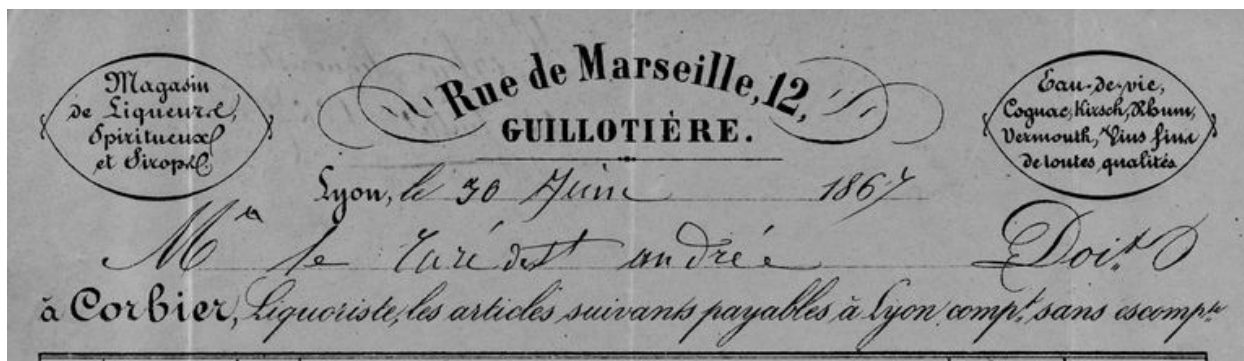 Magasin
de Liqueurs,
Spiritueux
et Sirops &.
Rue de Marseille, 12,
GUILLOTIÈRE.
Eau-de-vie,
Cognac, Kirsch, Rhum,
Vermouth, Vins fins
de toutes qualités
Lyon, le 30 Juin 1867
Mr le Curé de St andrée Doit
à Corbier, Liquoriste, les articles suivants payables à Lyon compt. sans escompte